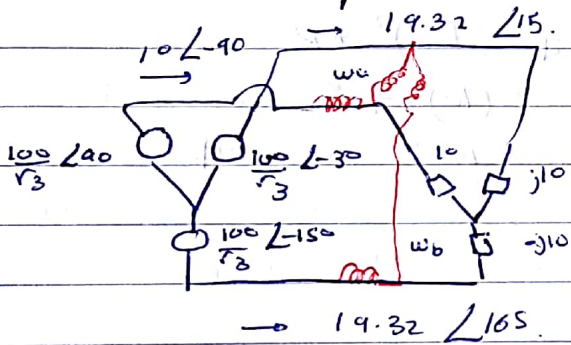 → 19.32 ∠15.
10 ∠-90
→
wa
100/√3 ∠90
100/√3 ∠-30
10
j10
100/√3 ∠-150
wb
-j10
→ 19.32 ∠165.